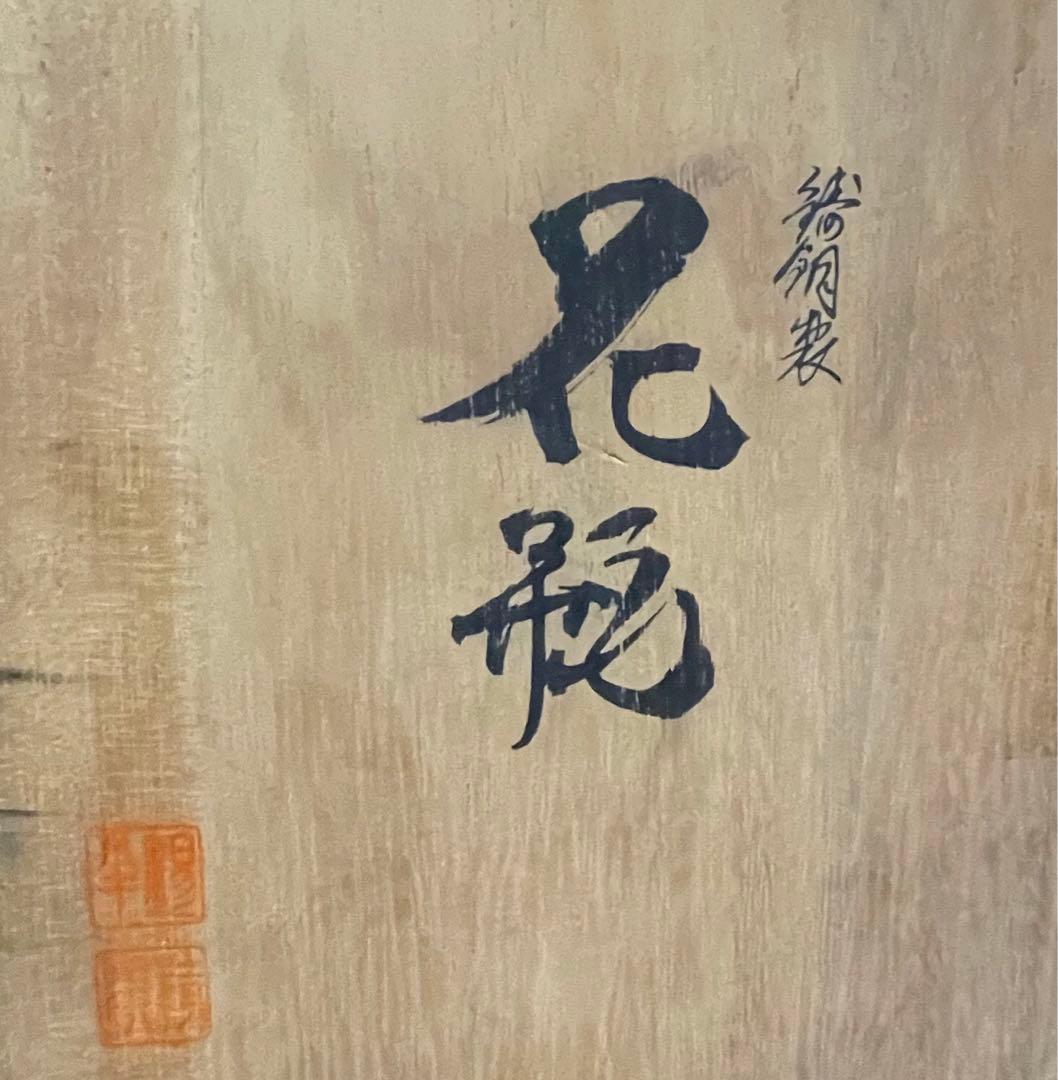 鋳銅製
花瓶